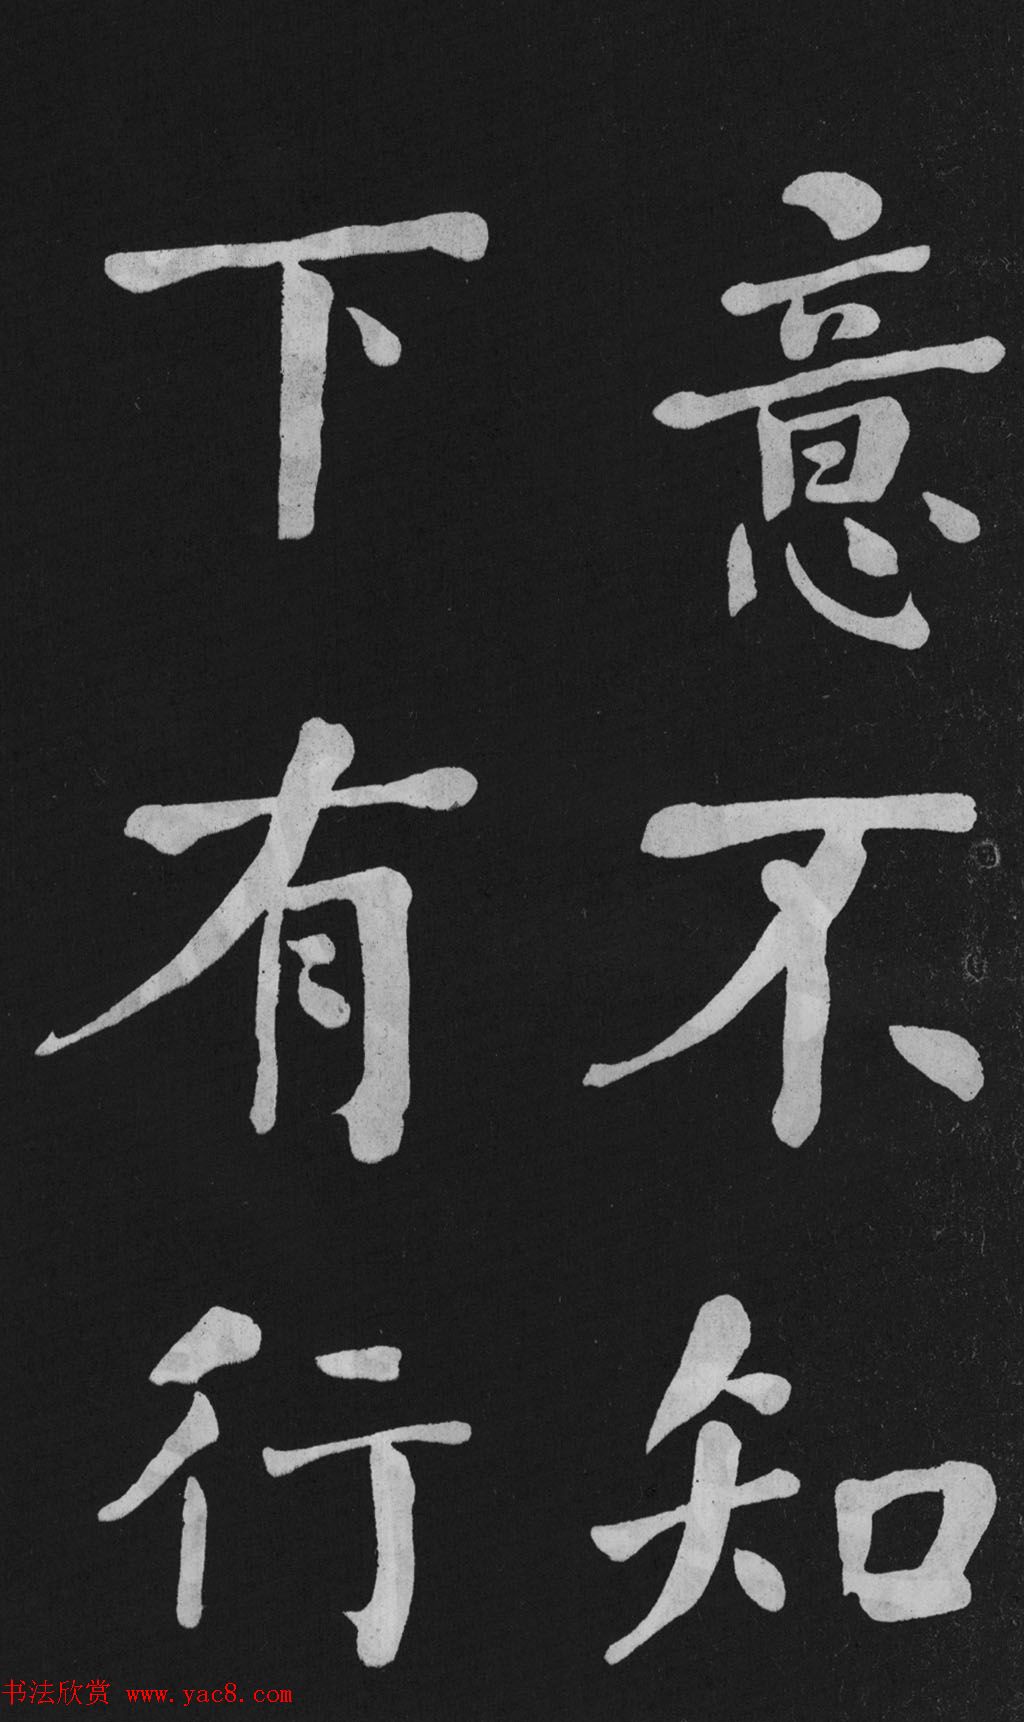 意不知
下有行
书法欣赏 www.yac8.com